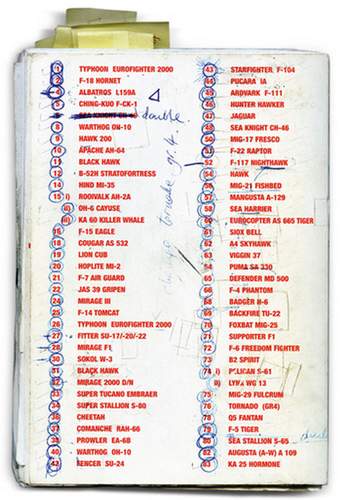 1 TYPHOON EUROFIGHTER 2000
2 F-18 HORNET
4 ALBATROS L159A
5 CHING-KUO F-CK-1
SEA KNIGHT double
8 WARTHOG OH-10
9 HAWK 200
10 APACHE AH-64
11 BLACK HAWK
12 B-52H STRATOFORTRESS
14 HIND MI-35
15 i) ROOIVALK AH-2A
ii) OH-6 CAYUSE
iii) KA 60 KILLER WHALE
16 F-15 EAGLE
18 COUGAR AS 532
19 LION CUB
20 HOPLITE MI-2
21 F-7 AIR GUARD
22 JAS 39 GRIPEN
24 MIRAGE III
25 F-14 TOMCAT
26 TYPHOON EUROFIGHTER 2000
27 FITTER SU-17/-20/-22
28 MIRAGE F1
30 SOKOL W-3
31 BLACK HAWK
32 MIRAGE 2000 D/N
33 SUPER TUCANO EMBRAER
34 SUPER STALLION S-80
36 CHEETAH
37 COMANCHE RAH-66
38 PROWLER EA-6B
40 WARTHOG OH-10
42 FENCER SU-24
43 STARFIGHTER F-104
44 PUCARA IA
45 ARDVARK F-111
46 HUNTER HAWKER
47 JAGUAR
48 SEA KNIGHT CH-46
50 MIG-17 FRESCO
51 F-22 RAPTOR
52 F-117 NIGHTHAWK
54 HAWK
56 MIG-21 FISHBED
57 MANGUSTA A-129
58 SEA HARRIER
60 EUROCOPTER AS 665 TIGER
61 SIOX BELL
62 A4 SKYHAWK
63 VIGGEN 37
64 PUMA SA 330
65 DEFENDER MD 500
66 F-4 PHANTOM
68 BADGER H-6
69 BACKFIRE TU-22
70 FOXBAT MIG-25
71 SUPPORTER F1
72 F-6 FREEDOM FIGHTER
73 B2 SPIRIT
74 i) PELICAN S-61
ii) LYNX WG 13
75 MIG-29 FULCRUM
76 TORNADO (GR4)
78 Q5 FANTAN
79 F-5 TIGER
80 SEA STALLION S-65
82 AUGUSTA (A-W) A 109
83 KA 25 HORMONE
tornado gr.4